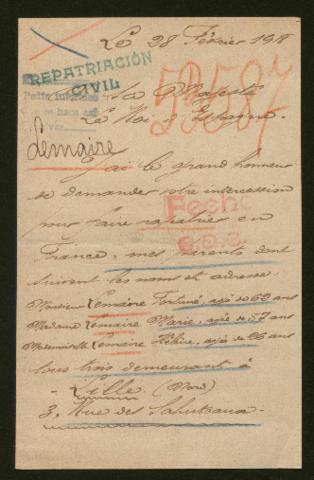 Le 28 Février 1918
REPATRIACIÓN
CIVIL
53587
Sa Majesté
Le Roi d'Espagne.
Lemaire
J'ai le grand honneur
de demander votre intercession
pour faire rapatrier en
Fecha
France, mes parents dont
suivent les noms et adresse.
Monsieur Lemaire Fortuné, agé de 62 ans
Madame Lemaire Marie, agée de 57 ans
Mademoiselle Lemaire Hélène, agée de 26 ans
tous trois demeurant à
- Lille (Nord)
3, Rue des